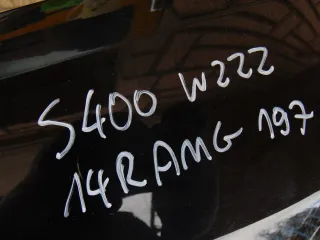 S400 W222
14R AMG 197